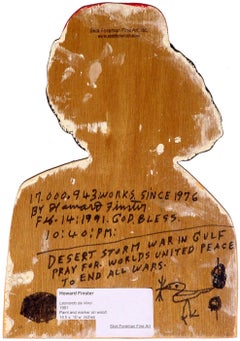 Dick Foreman Fine Art, Inc.
17.000.943 WORKS SINCE 1976
BY HOWARD FINSTER
FEB-14:1991. GOD. BLESS.
10:40:PM:
DESERT STORM WAR IN GULF
PRAY FOR. WORLDS UNITED PEACE
END ALL WARS.
Howard Finster
Leonardo da Vinci
1991
Paint and marker on wood